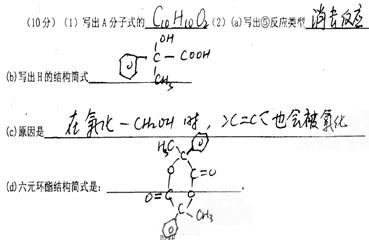 (10分) (1) 写出A分子式的 C₁₀H₁₀O₂ (2) (a)写出⑤反应类型 消去反应
OH
C — COOH
CH₃
(b)写出H的结构简式
(c)原因是 在氧化-CH₂OH时，>C=C<也会被氧化
H₃C
C
O C=O
O=C O
C-CH₃
(d)六元环酯结构简式是: